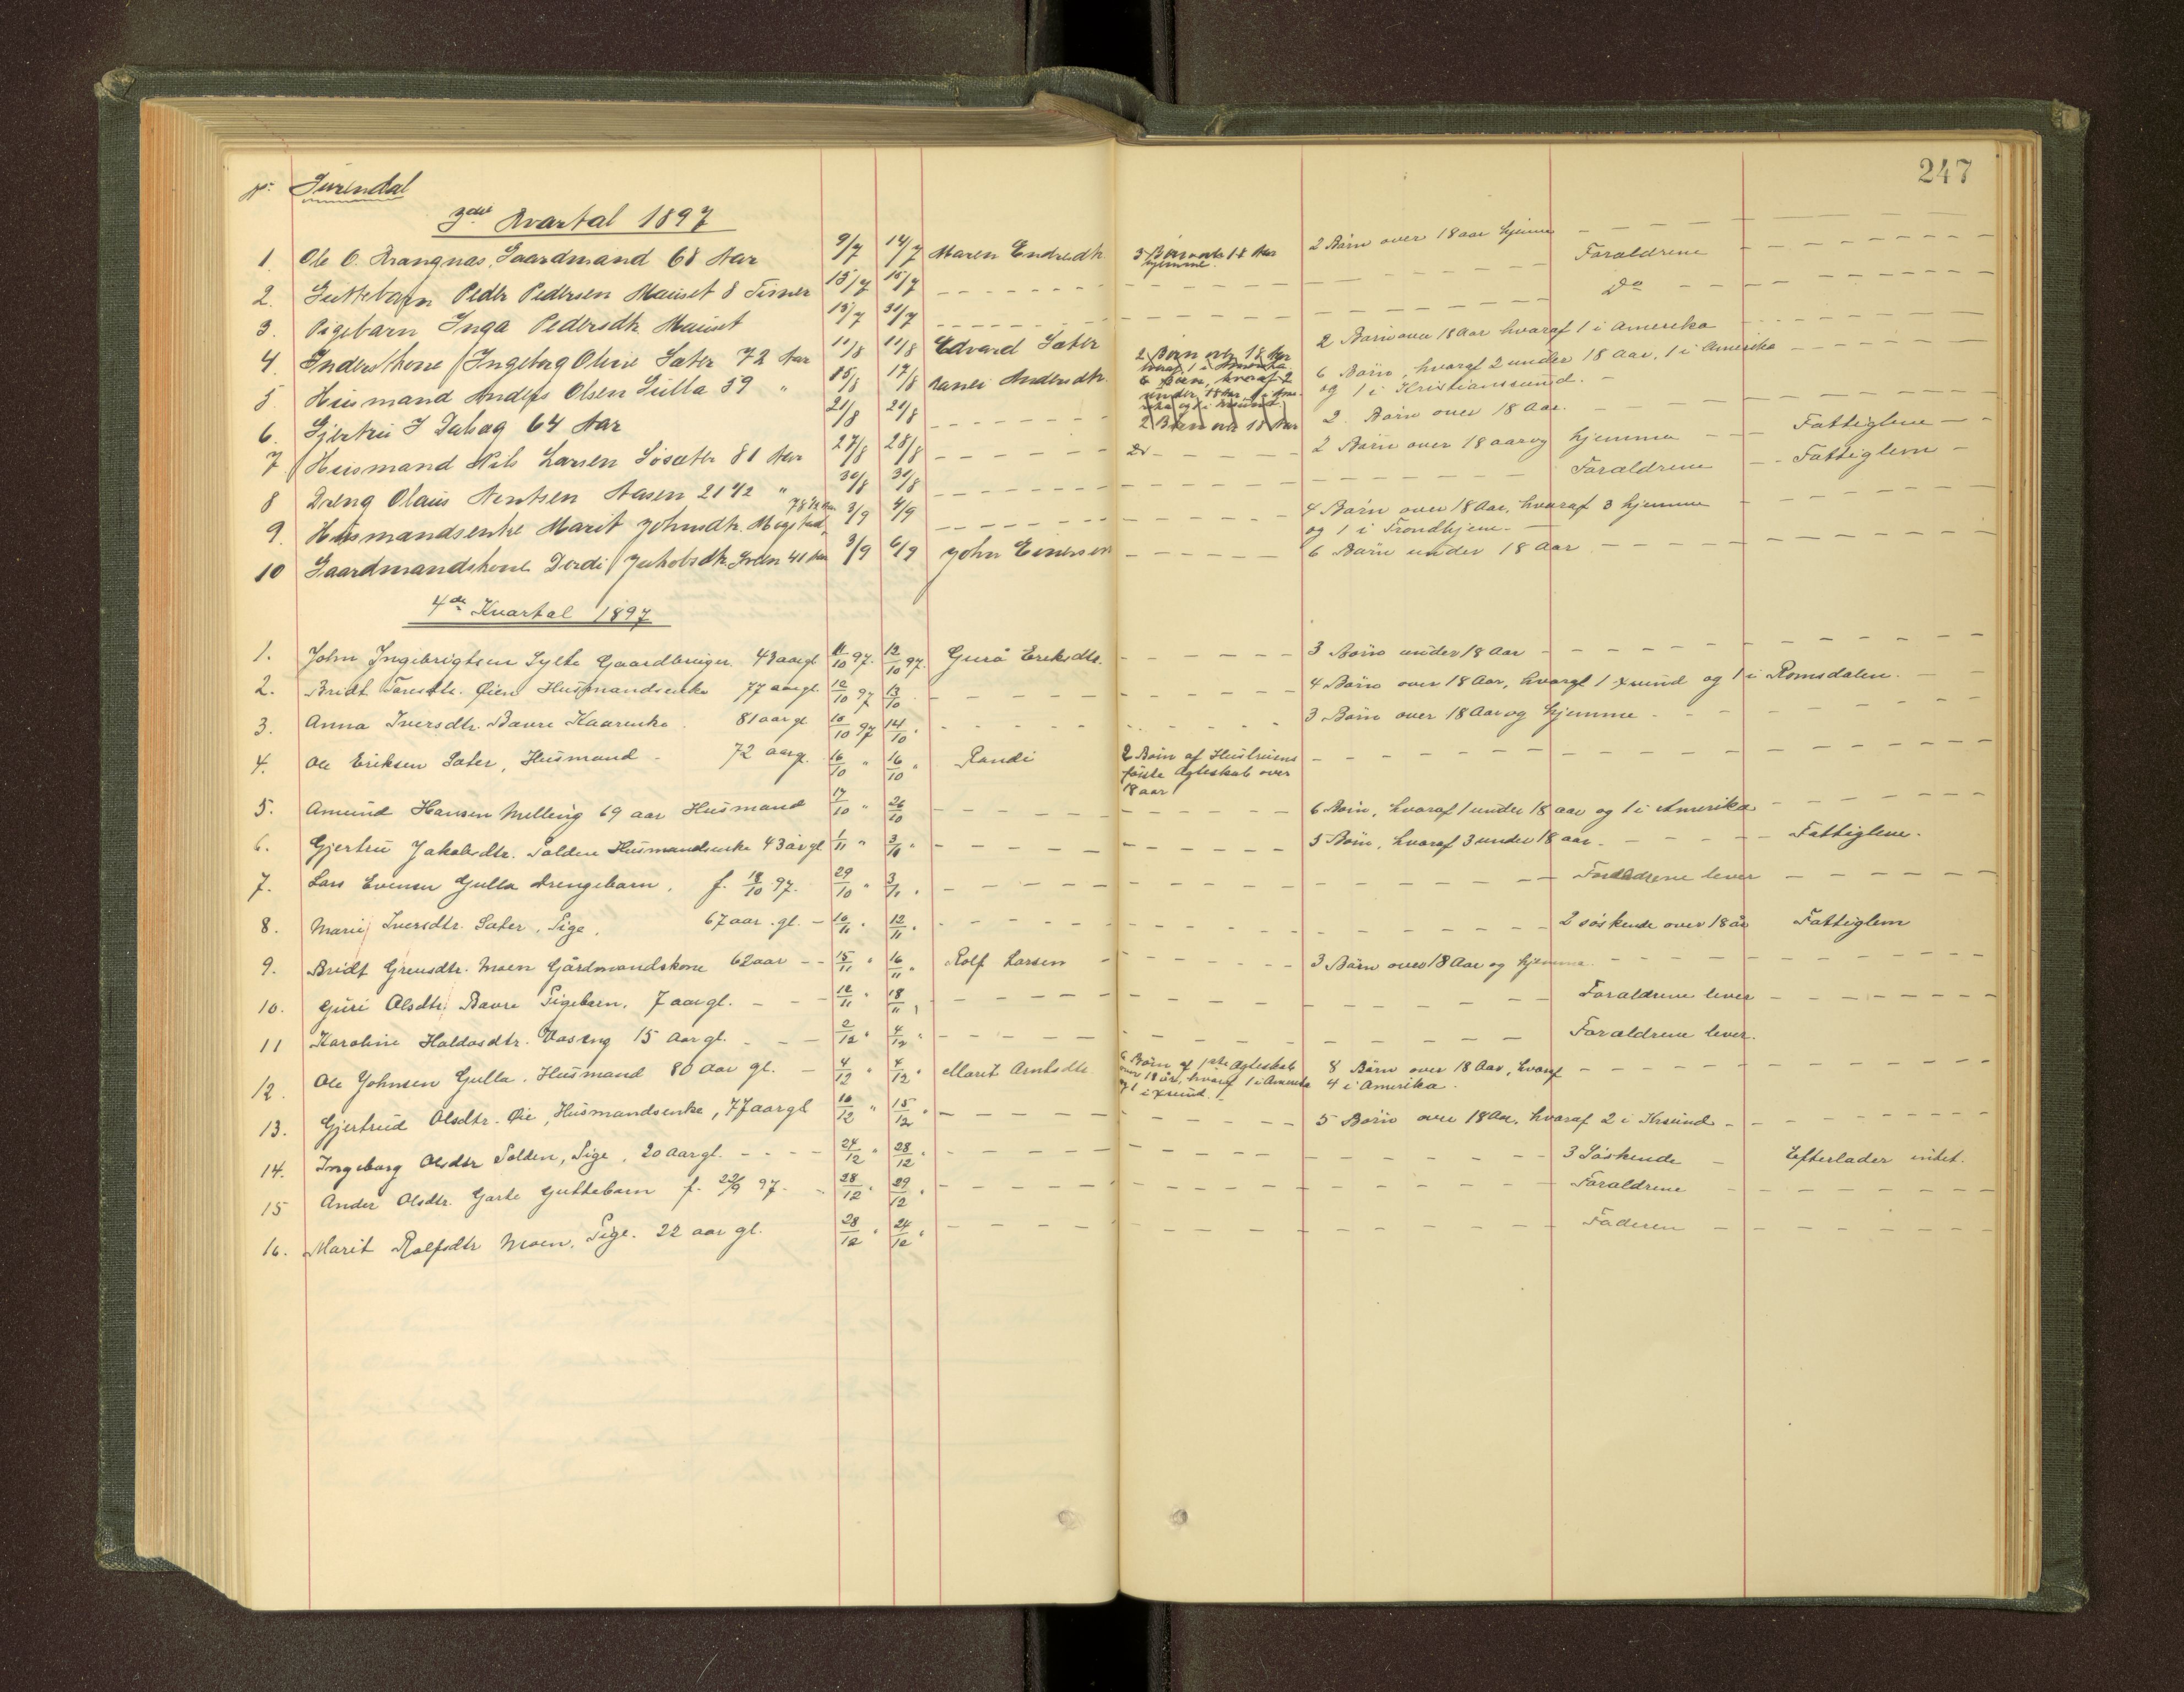 247
No Surendal
3die Kvartal 1897
1. Ole O. Kvangnæs, Gaardmand 68 Aar 9/7 14/7 Maren Endresdtr. 3 Børn 18 Aar hjemme. 2 Børn over 18 aar hjemme
2. Guttebarn Peder Pedersen Mauset 8 Timer 15/7 15/7 Forældrene
3. Pigebarn Inga Pedersdtr. Mauset 15/7 31/7 Do
4. Inderstkone Ingeborg Oline Sæter 72 Aar 11/8 11/8 Edvard Sæter 2 Børn over 18 Aar hvoraf 1 i Amerika 2 Børn over 18 Aar hvoraf 1 i Amerika
5 Husmand Anders Olsen Gulla 59 " 15/8 17/8 Andersdtr. 6 Børn, hvoraf 2 under 18 Aar, 6 Børn, hvoraf 2 under 18 Aar, 1 i Amerika
og 1 i Kristianssund.
6. Gjertru J 64 Aar 21/8 21/8 2 Børn over 18 Aar 2 Børn over 18 Aar.
7 Husmand Nils Larsen Søsæter 81 Aar 27/8 28/8 2 Børn over 18 aar og hjemme Fattiglem
8 Dreng Olaus Aasen 21 1/2 " 30/8 31/8 Forældrene Fattiglem
9. Husmandsenke Marit Johnsdtr. Mogstad 78 1/2 Aar 3/9 4/9 4 Børn over 18 Aar, hvoraf 3 hjemme
og 1 i Trondhjem.
10 Gaardmandskone Jakobsdtr. 41 Aar 3/9 6/9 John Einersen 6 Børn under 18 Aar
4de Kvartal 1897
1. John Ingebrigtsen Sylte Gaardbruger. 43 aar gl. 11/10 97. 12/10 97. Gurå Eriksdtr. 3 Børn under 18 Aar
2. Bridt Øien Husmandsenke 77 aar gl. 12/10 97 13/10 4 Børn over 18 Aar, hvoraf 1 Xsund og 1 i Romsdalen.
3. Anna Iversdtr. Bævre Kaarenke. 81 aar gl. 10/10 97 14/10. 3 Børn over 18 Aar og hjemme
4. Ole Eriksen Sæter, Husmand 72 aar g. 16/10 " 16/10 " Randi 2 Børn af Hustruens
første Ægteskab over
18 aar
5. Amund Hansen Melling 69 aar Husmand 17/10 " 26/10 6 Børn, hvoraf 1 under 18 aar og 1 i Amerika
6. Gjertru Jakobsdtr. Solden Husmandsenke 43 år gl 1/11 " 3/11 " 5 Børn, hvoraf 3 under 18 aar. Fattiglem.
7. Lars Evensen Gulla Drengebarn. f. 18/10 97. 29/10 " 3/11. Forældrene lever
8. Marie Iversdtr. Sæter, Pige. 67 aar. gl. 10/11 12/11. 2 søskende over 18 år Fattiglem
9. Bridt Moen Gårdmandskone 62 aar 15/11 " 16/11 " Rolf Larsen 3 Børn over 18 Aar og hjemme.
10. Guri Olsdtr. Bævre Pigebarn. 7 aar gl. 12/11 " 18/11 " Forældrene lever
11 Karoline Haldosdtr. Vaseng 15 Aar gl. 2/12 " 4/12 " Forældrene lever.
12. Ole Johnsen Gulla. Husmand 80 Aar gl. 4/12 " 4/12 " Marit Arntsdtr. 6 Børn af 1ste Ægteskab
over 18 år, hvoraf 1 i Amerika
og 1 i Xsund. 8 Børn over 18 Aar, hvoraf
4 i Amerika.
13. Gjertrud Olsdtr. Øie, Husmandsenke, 77 aar gl 10/12 " 15/12 " 5 Børn over 18 Aar, hvoraf 2 i Krsund
14. Ingeborg Olsdtr Solden, Pige. 20 Aar gl. 24/12 " 28/12 " 3 Søskende Efterlader intet.
15 Ander Olsdtr. Garte Guttebarn f. 22/9 97. 28/12 " 29/12 " Forældrene
16. Marit Rolfsdtr Moen, Pige. 22 aar gl. 28/12 " 24/12 " Faderen